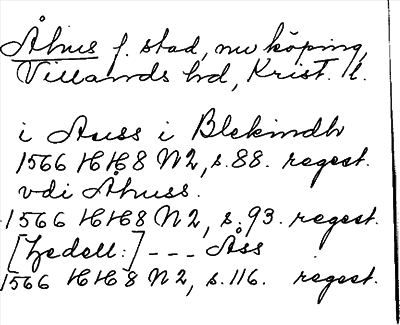 Åhus f. stad, nu köping,
Villands hd, Krist. l.
i Auss i Blekindh
1566 HH8 N2, s. 88. regest.
vdi Åhuss.
1566 HH8 N2, s. 93. regest.
[Zedell:] --- Åss
1566 HH8 N2, s. 116. regest.